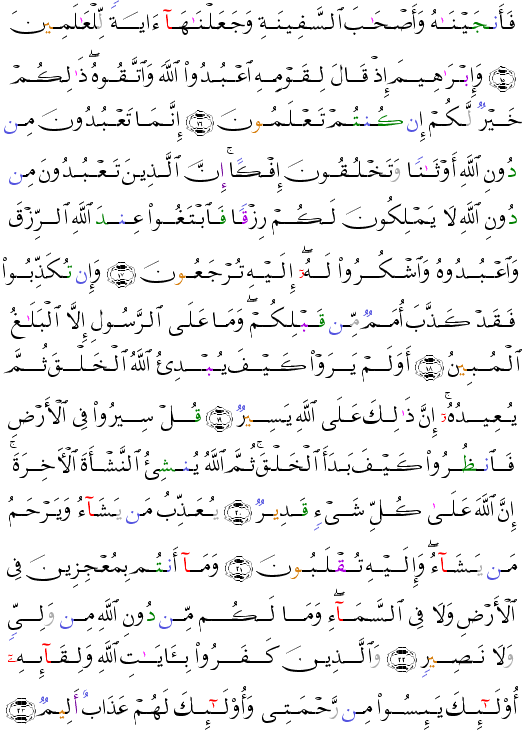 فَأَنجَيْنَٰهُ وَأَصْحَٰبَ ٱلسَّفِينَةِ وَجَعَلْنَٰهَآ ءَايَةً لِّلْعَٰلَمِينَ
۝١٥ وَإِبْرَٰهِيمَ إِذْ قَالَ لِقَوْمِهِ ٱعْبُدُوا۟ ٱللَّهَ وَٱتَّقُوهُ ۖ ذَٰلِكُمْ
خَيْرٌ لَّكُمْ إِن كُنتُمْ تَعْلَمُونَ ۝١٦ إِنَّمَا تَعْبُدُونَ مِن
دُونِ ٱللَّهِ أَوْثَٰنًا وَتَخْلُقُونَ إِفْكًا ۚ إِنَّ ٱلَّذِينَ تَعْبُدُونَ مِن
دُونِ ٱللَّهِ لَا يَمْلِكُونَ لَكُمْ رِزْقًا فَٱبْتَغُوا۟ عِندَ ٱللَّهِ ٱلرِّزْقَ
وَٱعْبُدُوهُ وَٱشْكُرُوا۟ لَهُۥٓ ۖ إِلَيْهِ تُرْجَعُونَ ۝١٧ وَإِن تُكَذِّبُوا۟
فَقَدْ كَذَّبَ أُمَمٌ مِّن قَبْلِكُمْ ۖ وَمَا عَلَى ٱلرَّسُولِ إِلَّا ٱلْبَلَٰغُ
ٱلْمُبِينُ ۝١٨ أَوَلَمْ يَرَوْا۟ كَيْفَ يُبْدِئُ ٱللَّهُ ٱلْخَلْقَ ثُمَّ
يُعِيدُهُۥٓ ۚ إِنَّ ذَٰلِكَ عَلَى ٱللَّهِ يَسِيرٌ ۝١٩ قُلْ سِيرُوا۟ فِى ٱلْأَرْضِ
فَٱنظُرُوا۟ كَيْفَ بَدَأَ ٱلْخَلْقَ ۚ ثُمَّ ٱللَّهُ يُنشِئُ ٱلنَّشْأَةَ ٱلْأَخِرَةَ ۚ
إِنَّ ٱللَّهَ عَلَىٰ كُلِّ شَىْءٍ قَدِيرٌ ۝٢٠ يُعَذِّبُ مَن يَشَآءُ وَيَرْحَمُ
مَن يَشَآءُ ۖ وَإِلَيْهِ تُقْلَبُونَ ۝٢١ وَمَآ أَنتُم بِمُعْجِزِينَ فِى
ٱلْأَرْضِ وَلَا فِى ٱلسَّمَآءِ ۖ وَمَا لَكُم مِّن دُونِ ٱللَّهِ مِن وَلِىٍّ
وَلَا نَصِيرٍ ۝٢٢ وَٱلَّذِينَ كَفَرُوا۟ بِـَٔايَٰتِ ٱللَّهِ وَلِقَآئِهِۦٓ
أُو۟لَٰٓئِكَ يَئِسُوا۟ مِن رَّحْمَتِى وَأُو۟لَٰٓئِكَ لَهُمْ عَذَابٌ أَلِيمٌ ۝٢٣